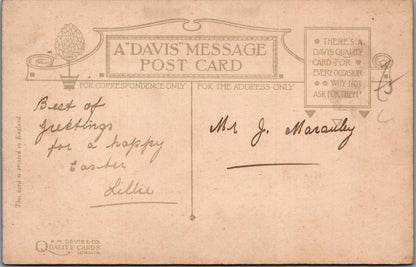 A "DAVIS" MESSAGE
POST CARD
THERE'S A
DAVIS QUALITY
CARD FOR
EVERY OCCASION
WHY NOT
ASK FOR THEM?
FOR CORRESPONDENCE ONLY
FOR THE ADDRESS ONLY
Best of
greetings
for a happy
Easter
Lillie
Mr J.
This card is printed in England.
A.M. DAVIS & CO.
QUALITY CARDS
LONDON